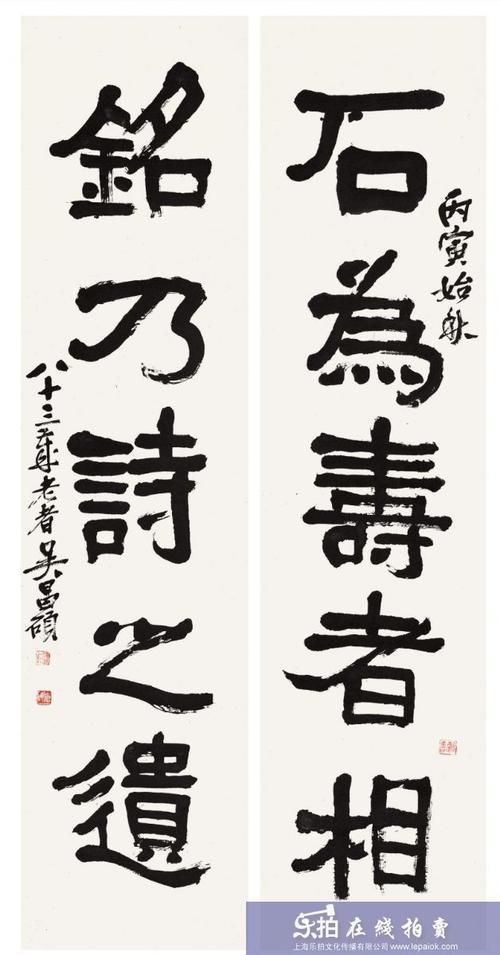 石為壽者相
丙寅始秋
銘乃詩之遺
八十三歲老者吳昌碩
乐拍在线拍賣
上海乐拍文化传播有限公司 www.lepaiok.com